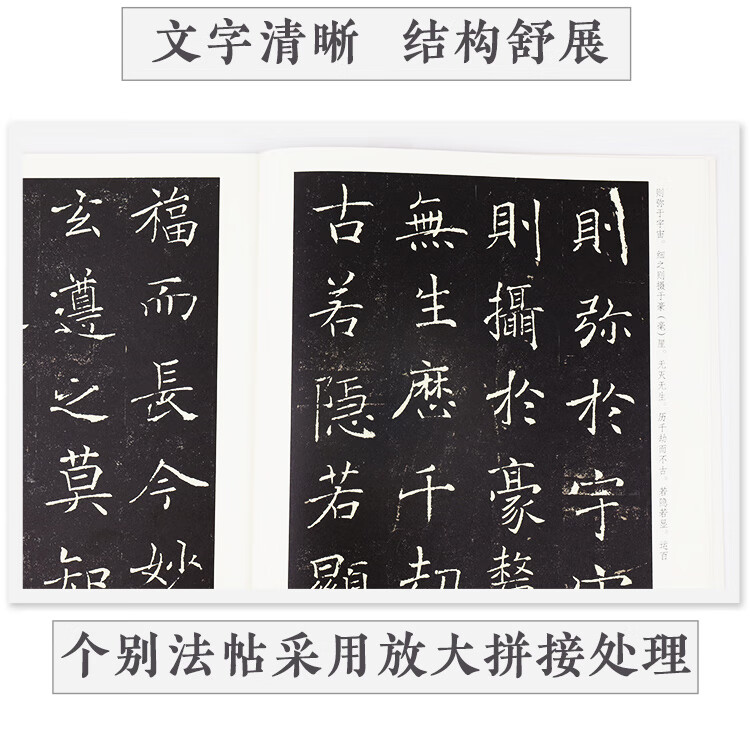 文字清晰 结构舒展
则弥于宇宙。细之则摄于豪（毫）厘。无灭无生，历千劫而不古。若隐若显，运百
則弥於宇
則攝於豪氂
無生歷千劫
古若隱若顯
福而長今妙
玄遵之莫知
个别法帖采用放大拼接处理